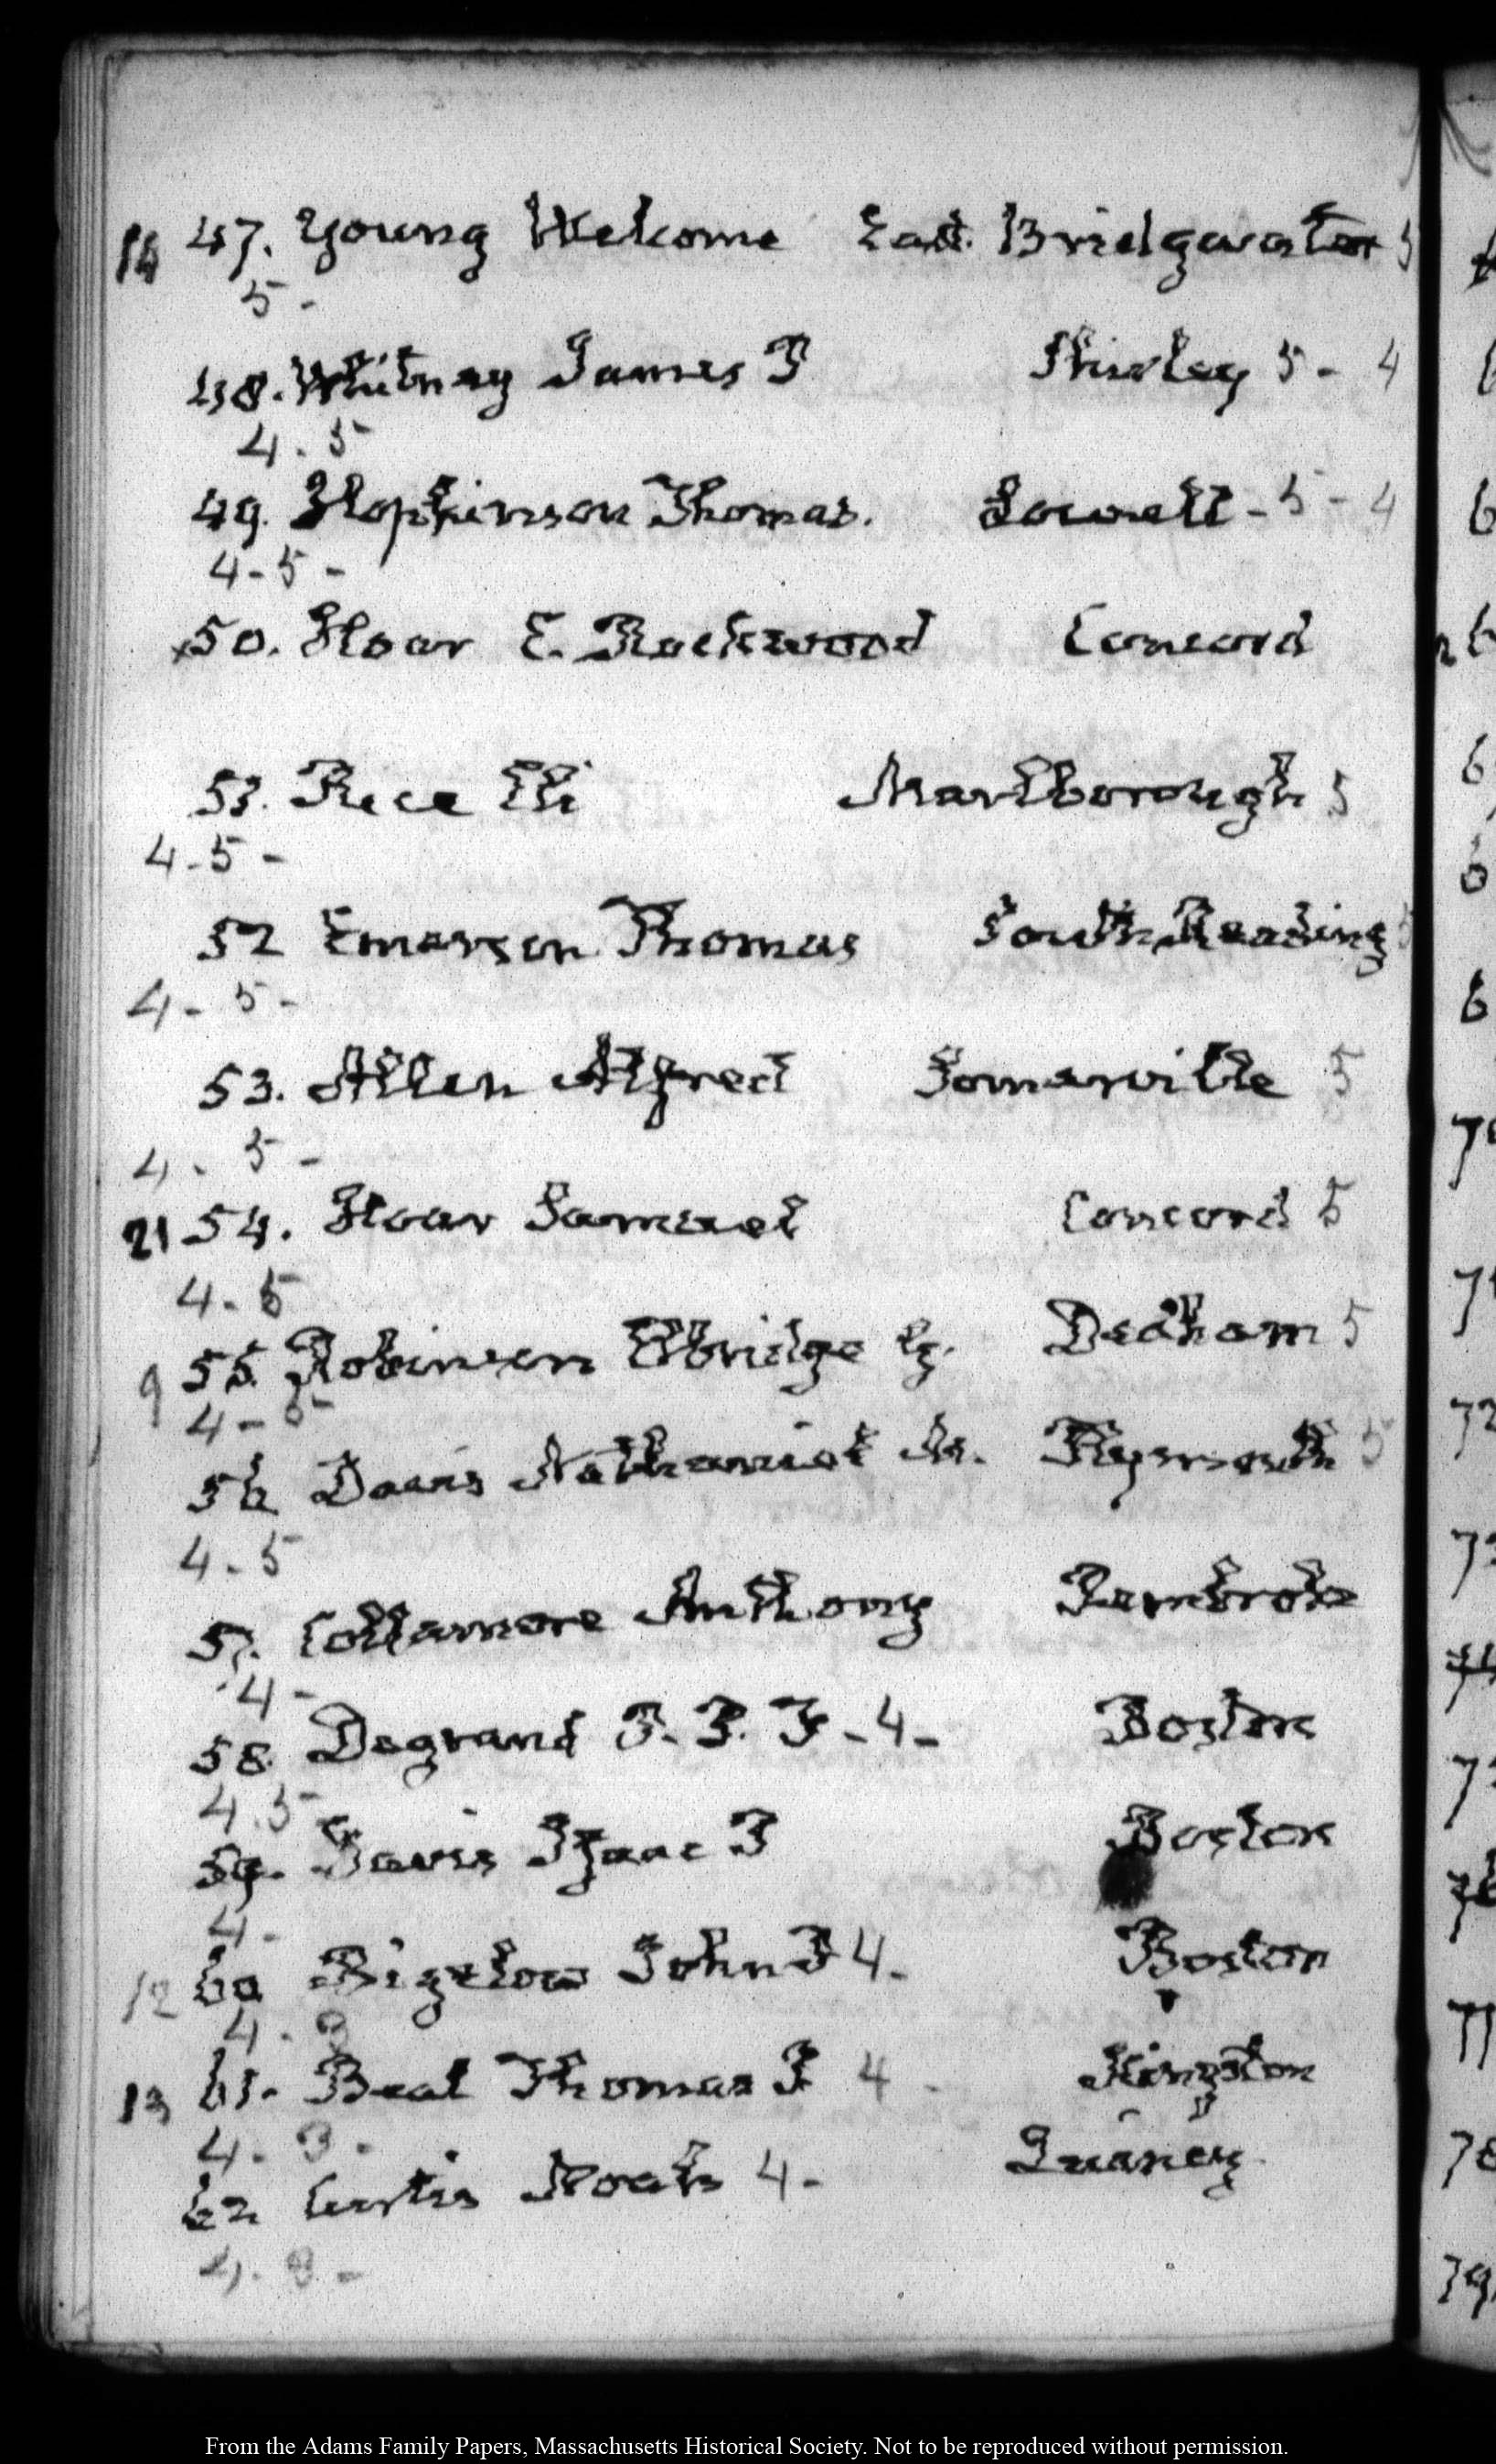 14 47. Young Welcome East Bridgewater 5
5 -
48. Whitney James P Shirley 5 - 4
4. 5
49. Hopkinson Thomas. Lowell - 5 - 4
4 - 5 -
50. Hoar E. Rockwood Concord
51. Rice Eli Marlborough 5
4 - 5 -
52 Emerson Thomas South Reading 5
4 - 5 -
53. Allen Alfred Somerville 5
4. 5 -
21 54. Hoar Samuel Concord 5
4. 5
9 55. Robinson Elbridge G. Dedham 5
4 - 5 -
56 Davis Nathaniel M. Plymouth 5
4. 5
57. Collamore Anthony Pembroke
4 -
58. Degrand P. P. F - 4 - Boston
4. 5
59. Davis Isaac P Boston
4.
12 60 Bigelow John P 4. Boston
4. 3
13 61. Beal Thomas P 4 - Kingston
4. 3.
62 Curtis Noah 4. Quincy
4. 3 -
From the Adams Family Papers, Massachusetts Historical Society. Not to be reproduced without permission.